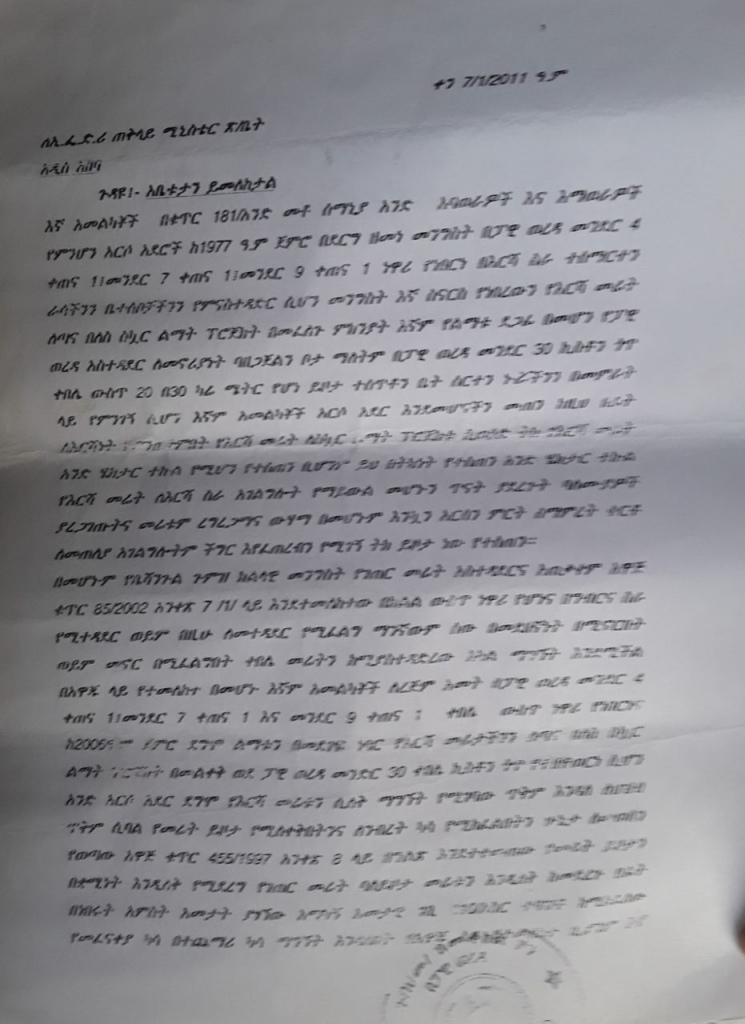 ቀን 7/1/2011 ዓ.ም
ለኢ.ፌ.ድ.ሪ ጠቅላይ ሚኒስቴር ጽ/ቤት
አዲስ አበባ
ጉዳዩ፤- አቤቱታን ይመለከታል
እኛ አመልካቾች በቁጥር 181/አንድ መቶ ሰማኒያ አንድ አባወራዎች እና እማወራዎች
የምንሆን አርሶ አደሮች ከ1977 ዓ.ም ጀምሮ በደርግ ዘመነ መንግስት በፓዊ ወረዳ መንደር 4
ቀጠና 1፣መንደር 7 ቀጠና 1፣መንደር 9 ቀጠና 1 ነዋሪ የነበርን በእርሻ ስራ ተሰማርተን
ራሳችንን ቤተሰቦቻችንን የምናስተዳድር ሲሆን መንግስት እኛ ስናርስ የነበረውን የእርሻ መሬት
ለጣና በለስ ስኳር ልማት ፕሮጀክት በመፈለጉ ምክንያት እኛም የልማቱ ደጋፊ በመሆን የፓዊ
ወረዳ አስተዳደር ለመኖሪያነት ባዘጋጀልን ቦታ ማለትም በፓዊ ወረዳ መንደር 30
ቀበሌ ውስጥ 20 በ30 ካሬ ሜትር የሆነ ይዞታ ተሰጥቶን ቤት ሰርተን ኑሯችንን በመምራት
ላይ የምንገኝ ሲሆን እኛም አመልካቾች አርሶ አደር እንደመሆናችን መጠን
የእርሻ መሬት ፕሮጀክት
አንድ ሄክታር ተኩል የሚሆን የተሰጠን ቢሆንም ይህ በትክክት የተሰጠን አንድ ሄክታር ተኩል
የእርሻ መሬት ለእርሻ ስራ አገልግሎት የማይውል መሆኑን ጥናት ያደረጉት ባለሙያዎች
ያረጋገጡትና መሬቱም ረግረጋማና ውሃማ በመሆኑም እንኳን አርሰን ምርት ለማምረት ቀርቶ
ለመጠለያ አገልግሎትም ችግር እየፈጠረብን የሚገኝ ትክ ይዞታ ነው የተሰጠን።
በመሆኑም የቤሻንጉል ጉምዝ ክልላዊ መንግስት የገጠር መሬት አስተዳደርና አጠቃቀም አዋጅ
ቁጥር 85/2002 አንቀጽ 7 /1/ ላይ እንደተመለከተው በክልል ውስጥ ነዋሪ የሆነና በግብርና ስራ
የሚተዳደር ወይም በዚሁ ለመተዳደር የሚፈልግ ማንኛውም ሰው በመደበኛነት በሚኖርበት
ወይም መኖር በሚፈልግበት ቀበሌ መሬትን ከሚያስተዳድረው አካል ማግኘት እንደሚችል
በአዋጁ ላይ የተመለከተ በመሆኑ እኛም አመልካቾች ለረጅም አመት በፓዊ ወረዳ መንደር 4
ቀጠና 1፣መንደር 7 ቀጠና 1 እና መንደር 9 ቀጠና 1 ቀበሌ ውስጥ ነዋሪ የነበርንና
ጀምሮ ደግሞ ልማቱን በመደገፍ ነባር የእርሻ መሬታችንን ለጣና በለስ ስኳር
ልማት በመልቀት ወደ ፓዊ ወረዳ መንደር 30 ቀበሌ
አንድ አርሶ አደር ደግሞ የእርሻ መሬቱን ሲለቅ ማግኘት የሚገባው ጥቅም እንዳለ
ጥቅም ሲባል የመሬት ይዞታ የሚለቀቅበትንና ለንብረት ካሳ የሚከፈልበትን ሁኔታ ለመወሰን
የወጣው አዋጅ ቁጥር 455/1997 አንቀጽ 8 ላይ በግልጽ እንደተቀመጠው የመሬት ይዞታን
በቋሚነት እንዲለቅ የሚደረግ የገጠር መሬት ባለይዞታ መሬቱን እንዲለቅ ከመደረጉ በፊት
በነበሩት አምስት አመታት ያገኘው አማካኝ አመታዊ ገቢ
የመፈናቀያ ካሳ በተጨማሪ ካሳ ማግኘት እንዳለበት